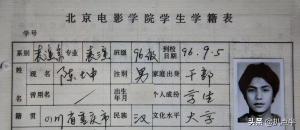 北京电影学院学生学籍表
学号
系别 表演系 专业 表演 班级 96级 到校日期 96.9.5
姓名 陈坤 性别 男 家庭出身 干部
曾用名 / 出生年月 个人成份 学生
籍贯 四川省重庆市 民族 汉 文化水平 大学
头条